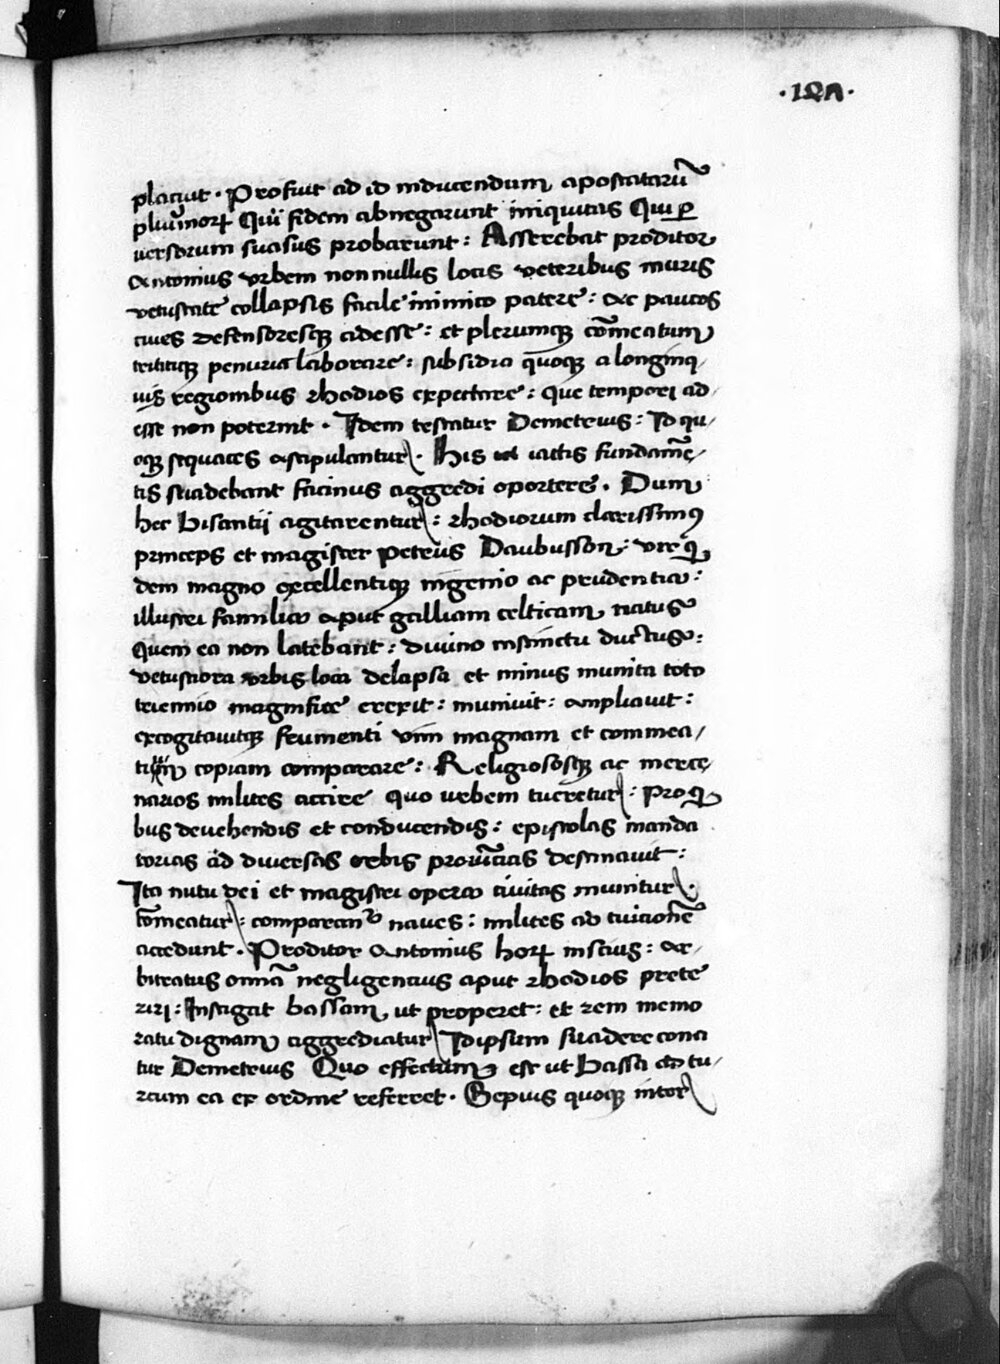 ·127·
placuit · Profuit ad id inducendum apostatarū
pluriumorꝝ Qui fidem abnegarunt iniquitas Qui ꝑ
uersorum suasus probarunt : Asserebat proditor
Antonius vrbem nonnullis locis veteribus muris
vetustate collapsis facile inimico patere : Ac paucos
ciues defensoresqꝫ adesse : et plerumqꝫ cōmeatum
triticiqꝫ penuria laborare : subsidia quoqꝫ a longinq/
uis regionibus rhodios expectare : Que tempori ad/
esse non poterint · Idem testatur Demetrius : Id qu/
oqꝫ sequaces astipulantur · His iactis fundamē/
tis suadebant facinus aggredi oportere · Dum
hec bisantii agitarentur : rhodiorum clarissimꝰ
princeps et magister petrus Daubusson : vir q̄
dem magno excellentiqꝫ ingenio ac prudentia :
illustri familia aput galliam celticam natus
Quem ea non latebant : diuino instinctu ductus :
vetustiora vrbis loca delapsa et minus munita toto
triennio magnifice erexit : muniuit : ampliauit :
excogitauitqꝫ frumenti vim magnam et commea/
tuum copiam comparare : Religiososqꝫ ac merce
narios milites accire quo urbem tueretur : pro q̄
bus deuehendis et conducendis : epistolas manda
torias ad diuersas orbis prouīcias destinauit :
Ita nutu dei et magistri opera ciuitas munitur ·
cōmeatur : comparantᵘ naues : milites ad tuicionē
accedunt · Proditor Antonius horꝝ inscius : Ar/
bitratus omnīa negligencius aput rhodios prete
riri : Instigat bassam ut properet : et rem memo
ratu dignam aggrediatur Idipsum suadere cona
tur Demetrius Quo effectum est ut bassa ad tu/
rcum ea ex ordine referret · Sepius quoqꝫ inter